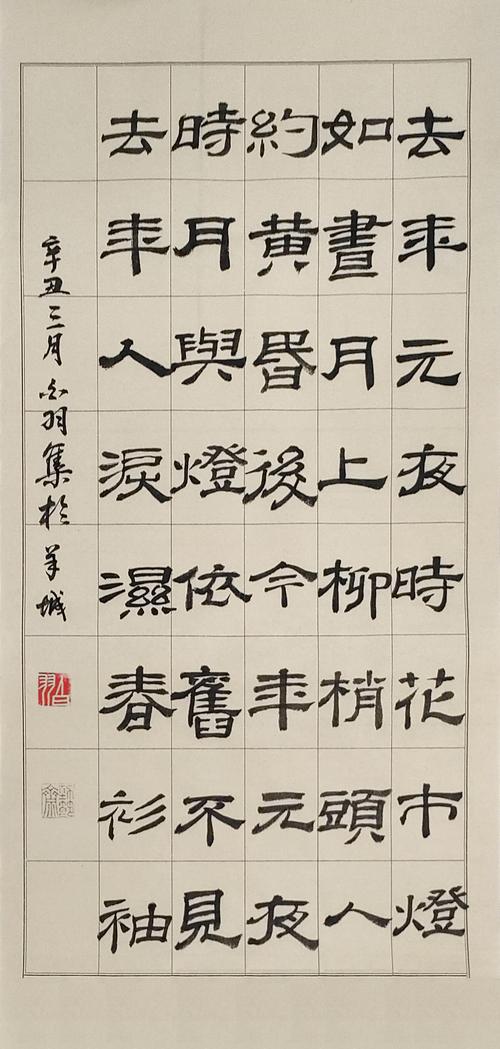 去年元夜時花市燈
如晝月上柳梢頭人
約黃昬後今年元夜
時月與燈依舊不見
去年人淚濕春衫袖
辛丑三月白羽集於羊城